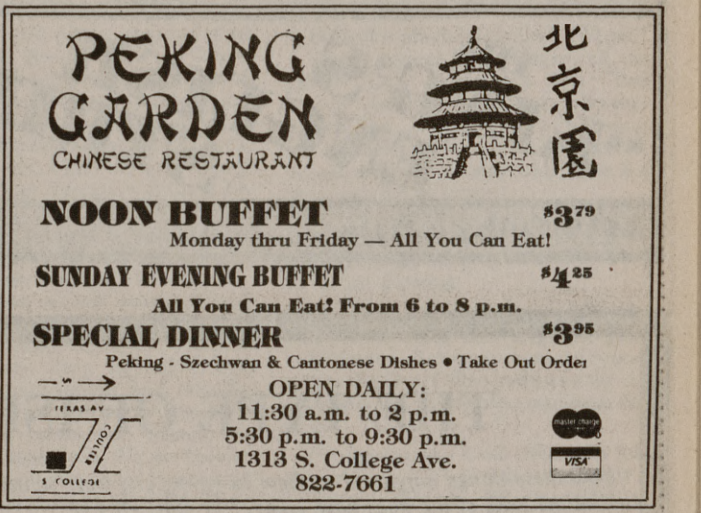 PEKING
GARDEN
CHINESE RESTAURANT
北京園
NOON BUFFET $3.79
Monday thru Friday — All You Can Eat!
SUNDAY EVENING BUFFET $4.25
All You Can Eat! From 6 to 8 p.m.
SPECIAL DINNER $3.95
Peking - Szechwan & Cantonese Dishes • Take Out Order
OPEN DAILY:
11:30 a.m. to 2 p.m.
5:30 p.m. to 9:30 p.m.
1313 S. College Ave.
822-7661
S
TEXAS AV
COULTER
S COLLEGE
master charge
VISA